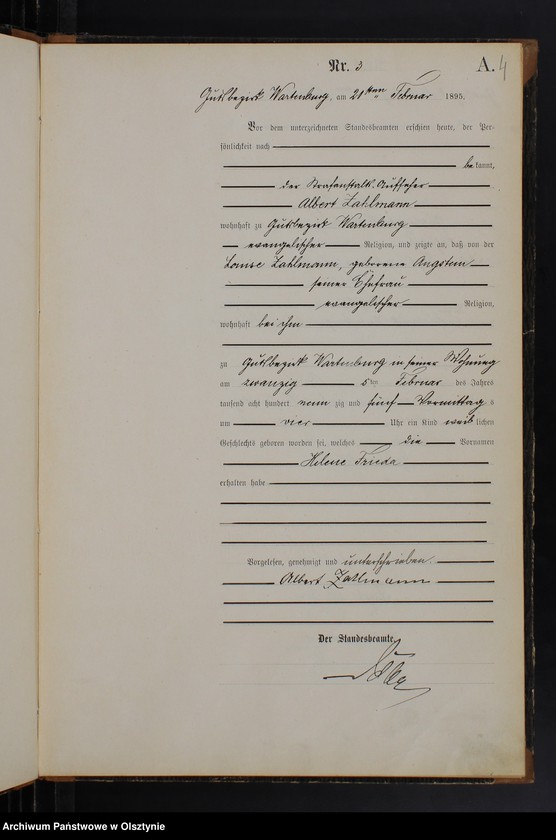 Nr. 3
A. 4
Gutsbezirk Wartenburg, am 21ten Februar 1895.
Vor dem unterzeichneten Standesbeamten erschien heute, der Per-
sönlichkeit nach
bekannt,
der Strafanstalts-Aufseher
Albert Zahlmann
wohnhaft zu Gutsbezirk Wartenburg
evangelischer Religion, und zeigte an, daß von der
Louise Zahlmann, geborene Angstein
seiner Ehefrau
evangelischer Religion,
wohnhaft bei ihm
zu Gutsbezirk Wartenburg in seiner Wohnung
am zwanzigsten Februar des Jahres
tausend acht hundert neunzig und fünf Vormittags
um vier Uhr ein Kind weiblichen
Geschlechts geboren worden sei, welches die Vornamen
Helene Frieda
erhalten habe
Vorgelesen, genehmigt und unterschrieben
Albert Zahlmann
Der Standesbeamte.
Archiwum Państwowe w Olsztynie